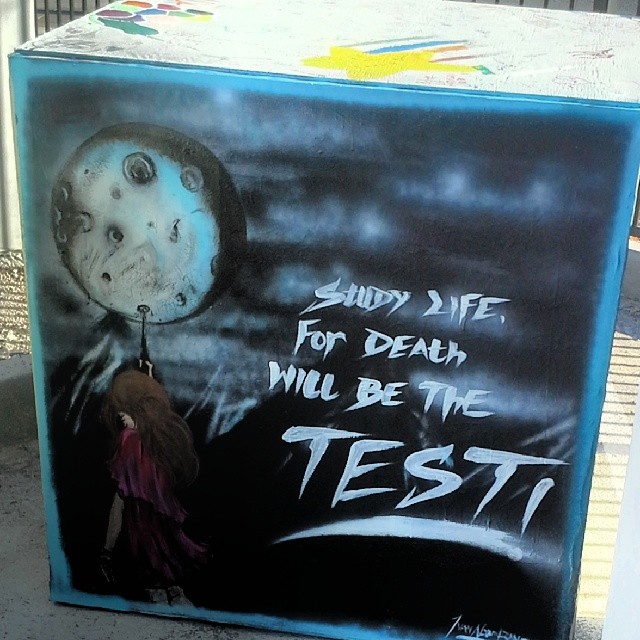 STUDY LIFE,
FOR DEATH
WILL BE THE
TEST!